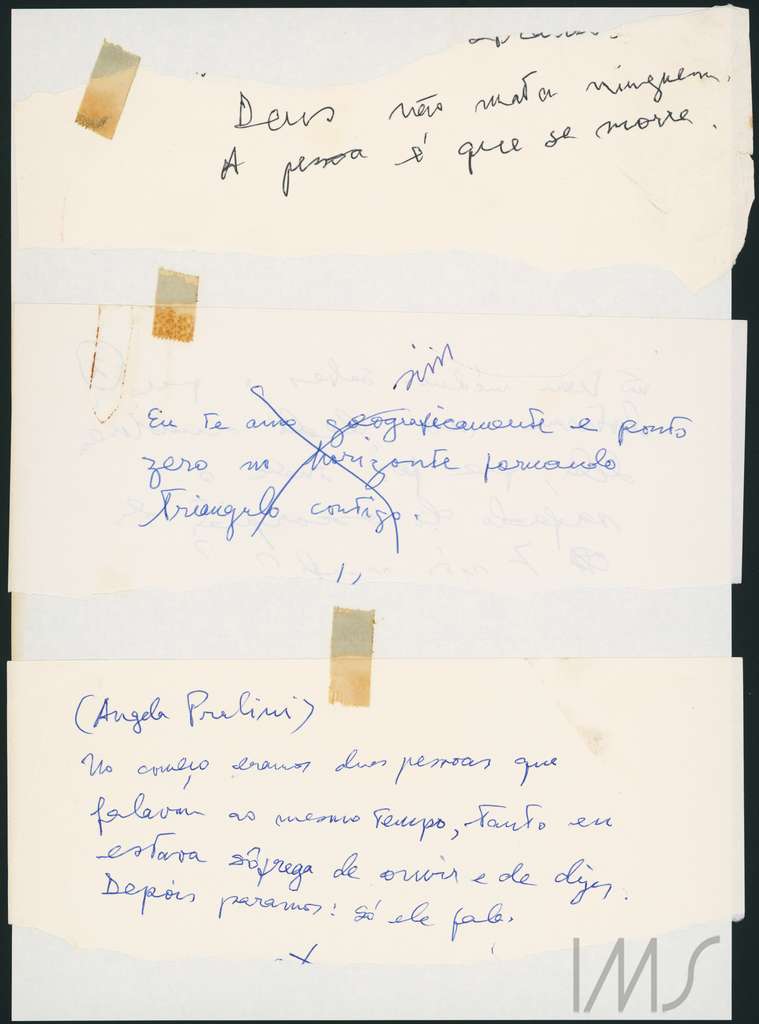 Deus não mata ninguem.
A pessoa é que se morre.
sim
Eu te amo geograficamente e ponto
zero no horizonte formando
triangulo contigo.
(Angela Pralini)
No começo eramos duas pessoas que
falavam ao mesmo tempo, tanto eu
estava sôfrega de ouvir e de dizer.
Depois paramos: só ele fala.
IMS